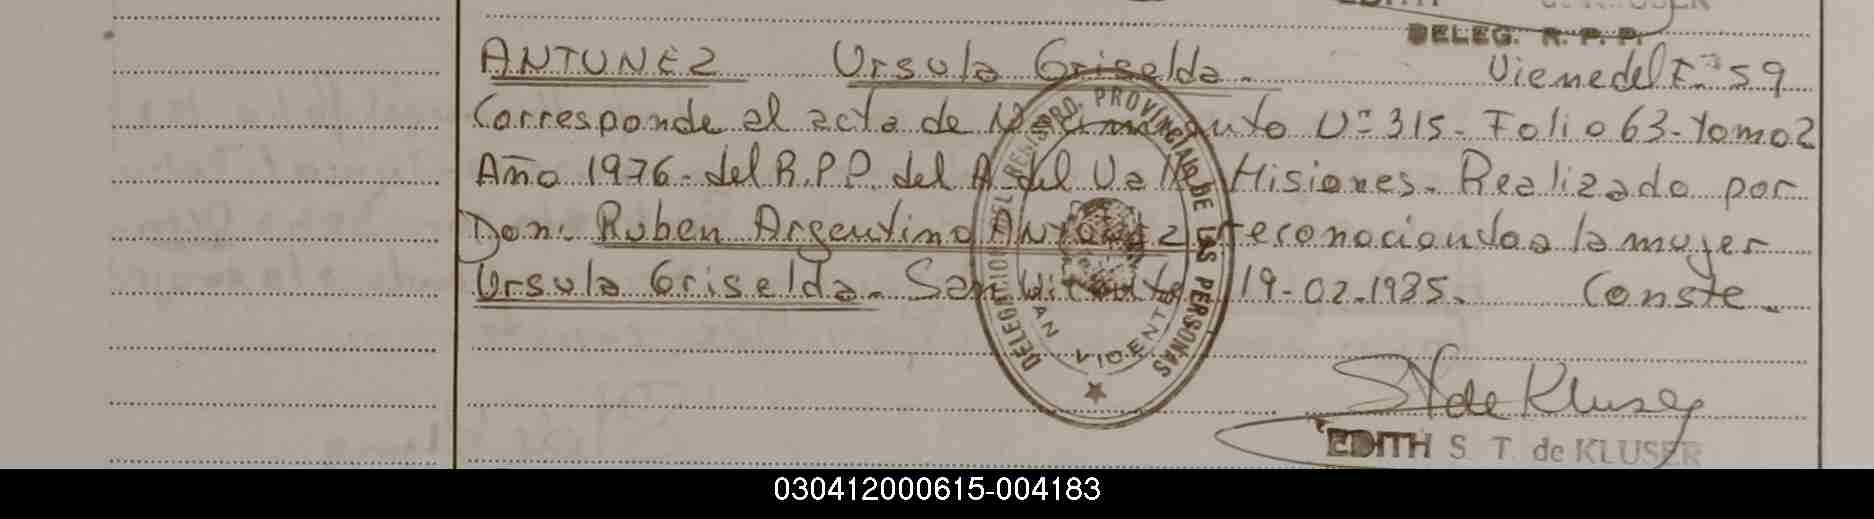 DELEG. R. P. P.
ANTUNEZ Ursula Griselda. Viene del Fº 59
Corresponde al acta de Nacimiento Nº 315. Folio 63. Tomo 2
Año 1976. del R.P.P. del A. del Valle Misiones. Realizado por
Don. Ruben Argentino ANTUNEZ reconociendo a la mujer
Ursula Griselda. San Vicente 19-02-1985. Conste
DELEGACION DEL REGISTRO PROVINCIAL DE LAS PERSONAS
SAN VICENTE
ST de Kluser
EDITH S. T. de KLUSER
030412000615-004183